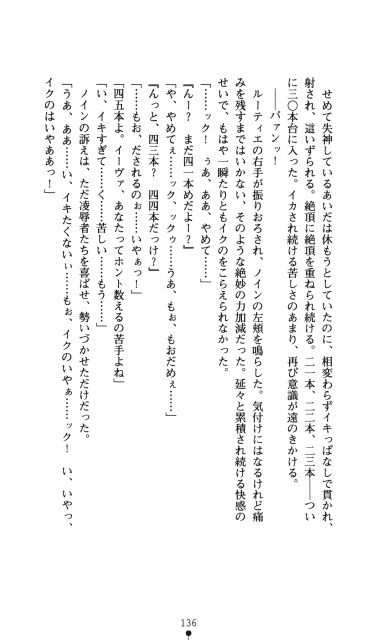 せめて失神しているあいだは休もうとしていたのに、相変わらずイキっぱなしで貫かれ、
射され、這いずられる。絶頂に絶頂を重ねられ続ける。二一本、二二本、二三本――つい
に三〇本台に入った。イカされ続ける苦しさのあまり、再び意識が遠のきかける。
――パァンッ！
ルーティエの右手が振りおろされ、ノインの左頬を鳴らした。気付けにはなるけれど痛
みを残すまではいかない、そのような絶妙の力加減だった。延々と累積され続ける快感の
せいで、もはや一瞬たりともイクのをこらえられなかった。
「……ック！　うぁ、ああ、やめて……」
『んー？　まだ四一本めだよー？』
「や、やめてぇ……ック、ックゥ……うあ、もぉ、もおだめぇ……」
『んっと、四三本？　四四本だっけ？』
「……もお、だされるの……いやぁっ！」
「四五本よ。イーヴァ、あなたってホント数えるの苦手よね」
「い、イキすぎて……く……苦しい……もう……」
ノインの訴えは、ただ凌辱者たちを喜ばせ、勢いづかせただけだった。
「うあ、ああ……い、イキたくないぃ……もぉ、イクのいやぁ……ック！　い、いやっ、
イクのはいやああっ！」
136